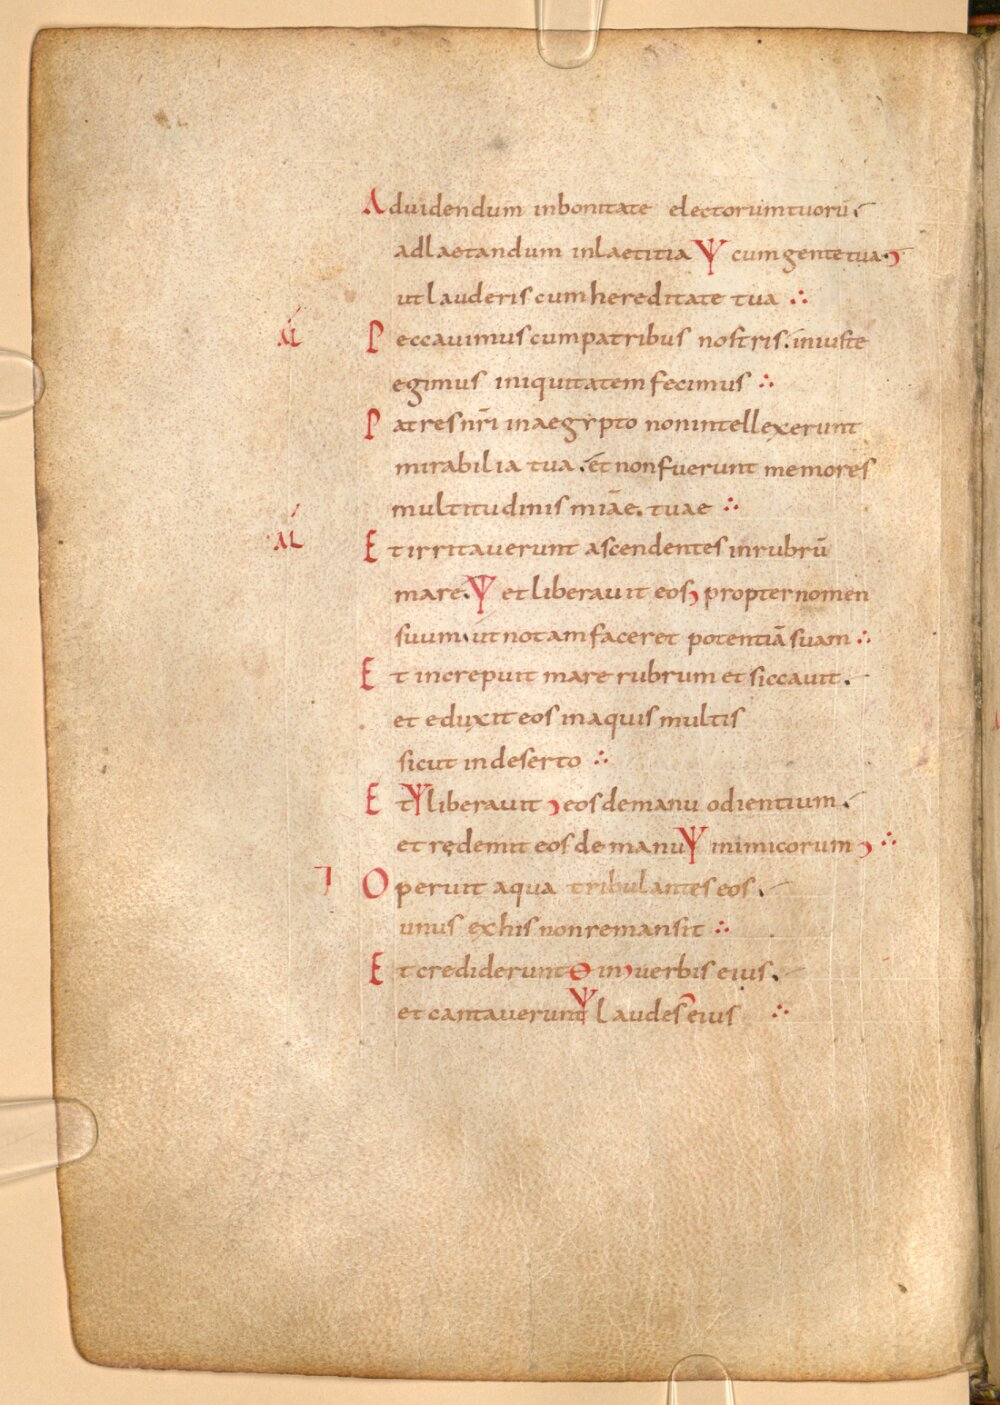 Aduidendum inbonitate electorumtuorū.
adlaetandum inlaetitia Ψ cumgentetua.
utlauderis cumhereditate tua ∴
AL Peccauimus cumpatribus nostris. iniuste
egimus iniquitatem fecimus ∴
Patres nr̄i inaegypto nonintellexerunt
mirabilia tua. et nonfuerunt memores
multitudinis miāe. tuae ∴
AL Etirritauerunt ascendentes inrubrū
mare. Ψ etliberauit eos propternomen
suum. utnotamfaceret potentiā suam ∴
Et increpuit mare rubrum et siccauit.
et eduxit eos inaquis multis
sicut indeserto ∴
Et Ψ liberauit eos demanu odientium.
et rędemit eos de manu Ψ inimicorum ∴
Operuit aqua tribulantes eos.
unus exhis nonremansit ∴
Et crediderunt in uerbis eius.
et cantauerunt Ψ laudes eius ∴